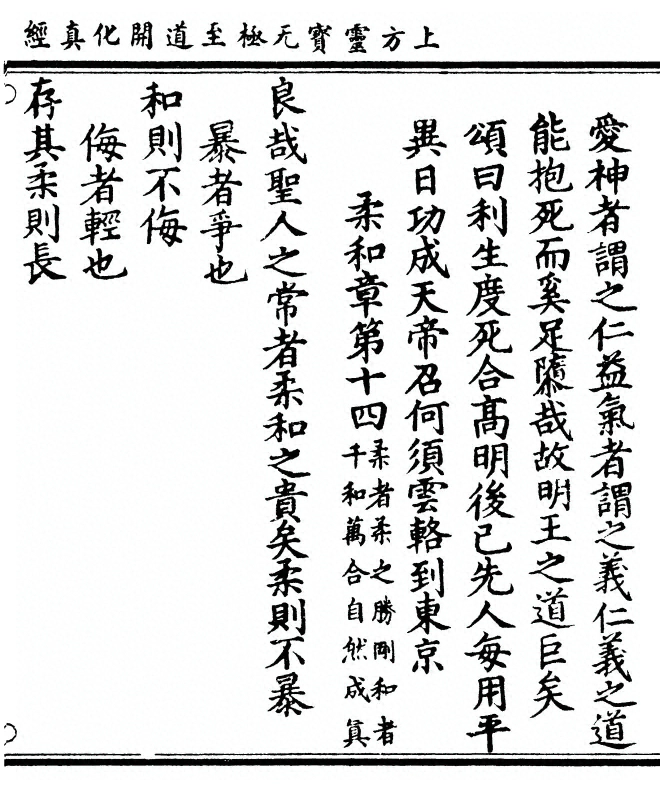 上方靈寳无極至道開化真經
愛神者謂之仁益氣者謂之義仁義之道
能抱死而奚足隳哉故明王之道巨矣
頌曰利生度死合髙明後己先人每用平
異日功成天帝召何須雲輅到東京
柔和章第十四
柔者柔之勝剛和者
千和萬合自然成真
良哉聖人之常者柔和之貴矣柔則不暴
暴者爭也
和則不侮
侮者輕也
存其柔則長